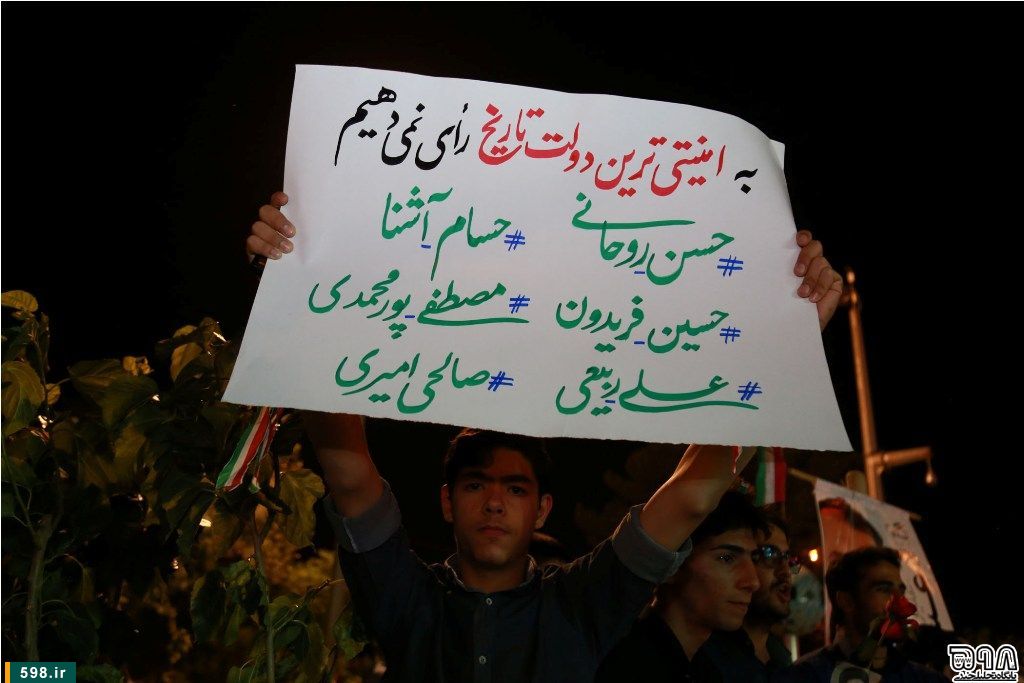 به امنیتی ترین دولت تاریخ رأی نمی دهیم
#حسن_روحانی #حسام_آشنا
#حسین_فریدون #مصطفی_پورمحمدی
#علی_ربیعی #صالحی امیری
598.ir
۵۹۸